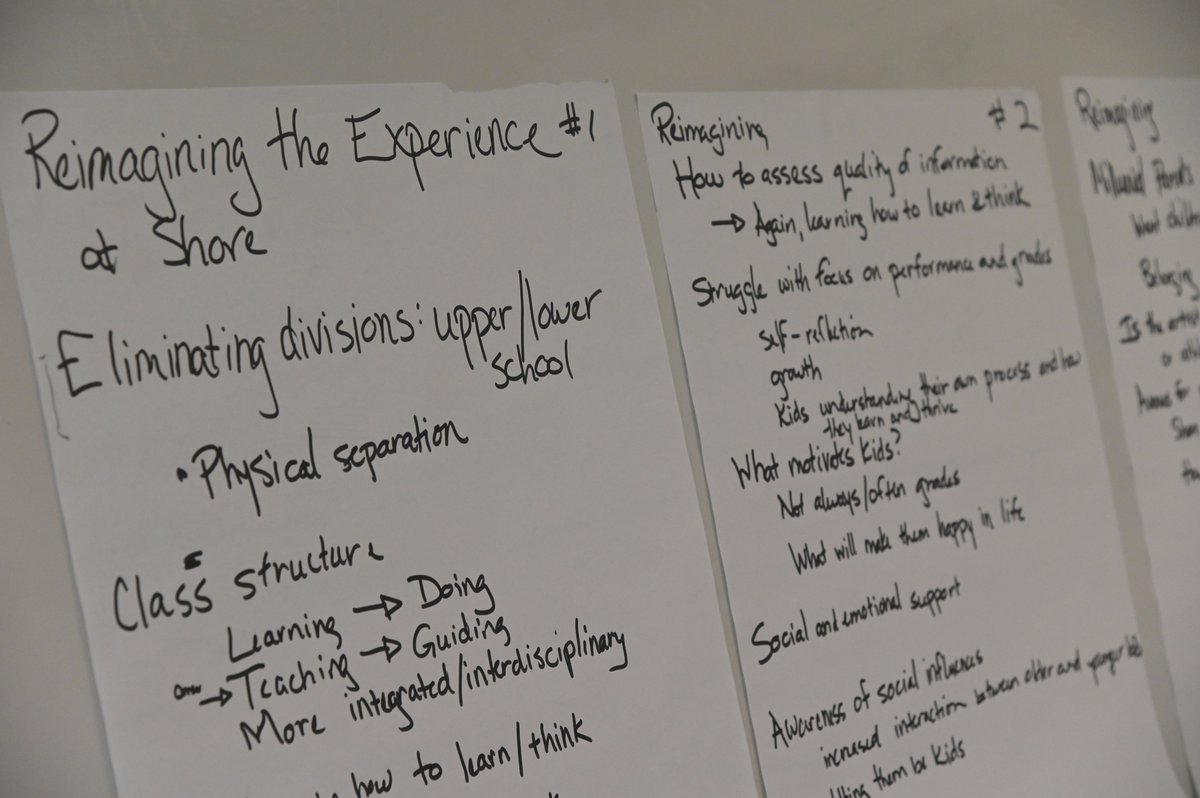 Reimagining the Experience #1
at Shore
Eliminating divisions: upper/lower
school
• Physical separation
Class structure
Learning → Doing
→ Teaching → Guiding
More integrated/interdisciplinary
how to learn/think
Reimagining #2
How to assess quality of information
→ Again, learning how to learn & think
Struggle with focus on performance and grades
self-reflection
growth
Kids understanding their own process and how
they learn and thrive
What motivates kids?
Not always/often grades
What will make them happy in life
Social and emotional support
Awareness of social influences
increased interaction between older and younger kids
them be kids
Reimagining
Belonging
Is the
or